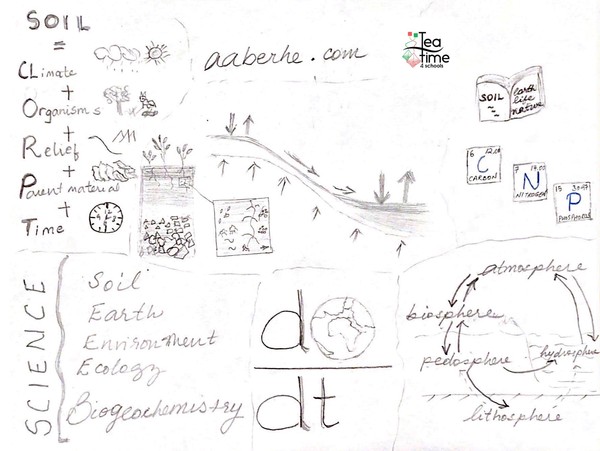 SOIL
=
CLimate
+
Organisms
+
Relief
+
Parent material
+
Time
aaberhe.com
Tea
time
4 schools
SOIL
earth
life
nature
6
C
CARBON
7 14.00
N
NITROGEN
15 30.97
P
PHOSPHORUS
SCIENCE
Soil
Earth
Environment
Ecology
Biogeochemistry
d
dt
atmosphere
biosphere
pedosphere
hydrosphere
lithosphere